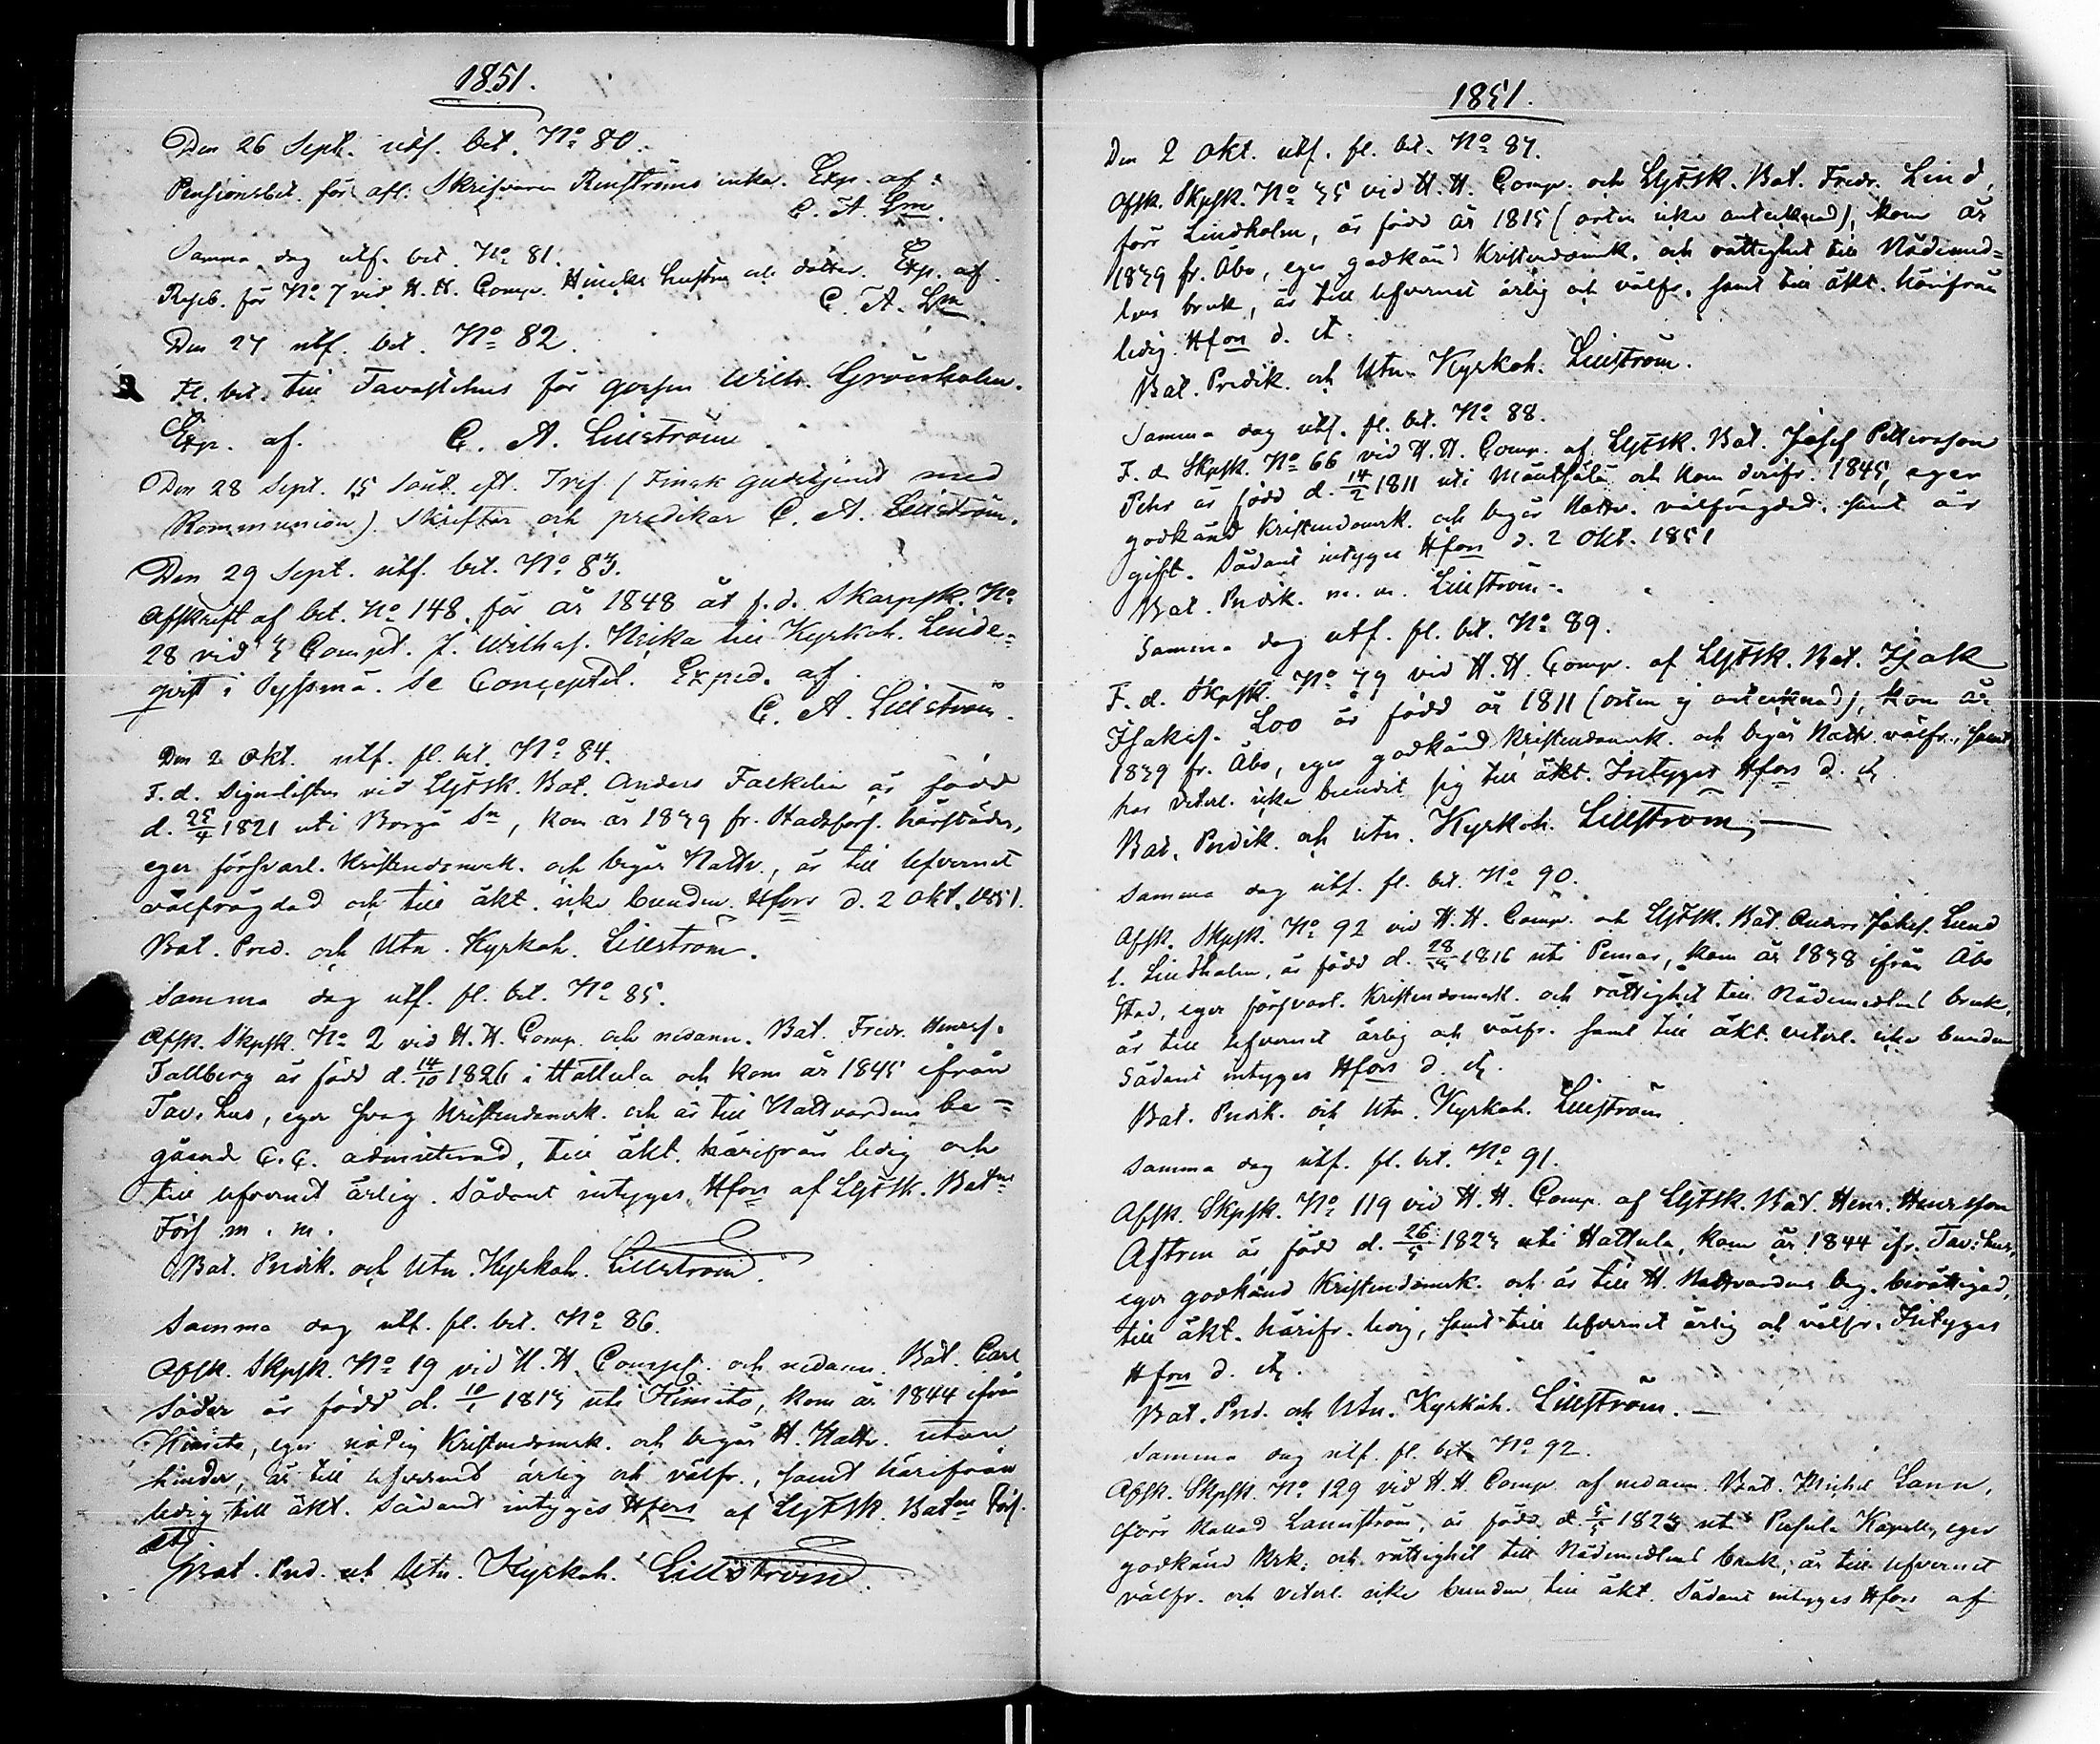 1851.
Den 26 Sept. utf. bet. No 80.
Pensionsbet. för afl. Skrifvaren Renströms enka. Exp. af.
C. A. Lm.
Samma dag utf. bet. No 81.
Reseb. för No 7 vid H. H. Comp. hustru och dotter. Exp. af
C. A. Lm
Den 27 utf. bet. No 82.
Fl. bet. till Tavastehus för gossen Wilh. Grönholm.
Exp. af. C. A. Lillström
Den 28 Sept. 15 Sönd. eft. Tref. (Finsk gudstjenst med
Kommunion). Skriftar och predikar C. A. Lillström.
Den 29 Sept. utf. bet. No 83.
Afskrift af bet. No 148. för år 1848 åt f. d. Skarpsk. No
28 vid 3 Comp. J. Wilhelmsf. till Kyrkoh. Linde=
qvist i Sysmä. Se Conceptet. Exped. af
C. A. Lillström.
Den 2 Okt. utf. fl. bet. No 84.
F. d. Signalisten vid LgFSk. Bat. Anders Falkelin är född
d. 25/4 1821 uti Borgå Sn, kom år 1839 fr. Stadsförs. härstädes,
eger försvarl. Kristendomsk. och begår Nattv., är till lefvernet
välfrägdad och till äkt. icke bunden. Hfors d. 2 Okt. 1851.
Bat. Pred. och Utn. Kyrkoh. Lillström.
Samma dag utf. fl. bet. No 85.
Afsk. Skpsk. No 2 vid H. H. Comp. och nedann. Bat. Fredr. Henrsf.
Tallberg är född d. 14/10 1826 i Hattula och kom år 1845 ifrån
Tav:hus, eger svag Kristendomsk. och är till Nattvardens be=
gående C. C. admitterad, till äkt. härifrån ledig och
till lefvernet ärlig. Sådant intygges Hfors af LgFSk. Batns
Förs m. m.
Bat. Predik. och Utn. Kyrkoh. Lillström.
Samma dag utf. fl. bet. No 86.
Afsk. Skpsk. No 19 vid H. H. Comp. och nedann. Bat. Carl
Söder är född d. 10/1 1813 uti Kimito, kom år 1844 ifrån
Kimito, eger nödig Kristendomsk. och begår H. Nattv. utan
hinder, är till lefvernet ärlig och välfr., samt härifrån
ledig till äkt. Sådant intygges Hfors af LgFSk. Batns Förs.
etc
Bat. Pred. och Utn. Kyrkoh. Lillström.
1851.
Den 2 Okt. utf. fl. bet. No 87.
Afsk. Skpsk. No 35 vid H. H. Comp. och LgFSk. Bat. Fredr. Lind,
förr Lindholm, är född år 1815 (orten icke antecknad), kom år
1839 fr. Åbo, eger godkänd Kristendomsk. och rättighet till Nådemed=
lens bruk, är till lefvernet ärlig och välfr. samt till äkt. härifrån
ledig. Hfors d. et.
Bat. Predik. och Utn. Kyrkoh. Lillström.
Samma dag utf. fl. bet. No 88.
F. d. Skpsk. No 66 vid H. H. Comp. af LgFSk. Bat. Josef Pettersson
Pehr är född d. 14/2 1811 uti Mäntsälä och kom derifr. 1845, eger
godkänd Kristendomsk. och begår Nattv. välfrägdad, samt är
gift. Sådant intyges Hfors d. 2 Okt. 1851
Bat. Predik. m. m. Lillström.
Samma dag utf. fl. bet. No 89.
F. d. Skpsk. No 79 vid H. H. Comp. af LgFSk. Bat. Isak
Isaksf. Loo är född år 1811 (orten ej antecknad), kom år
1839 fr. Åbo, eger godkänd Kristendomsk. och begår Nattv. välfr., samt
har veterl. icke bundit sig till äkt. Intyges Hfors d. et
Bat. Predik. och Utn. Kyrkoh. Lillström.
Samma dag utf. fl. bet. No 90.
Afsk. Skpsk. No 92 vid H. H. Comp. och LgFSk. Bat. Anders Johsf. Lund
l. Lindholm, är född d. 1816 uti Pemar, kom år 1838 ifrån Åbo
Stad, eger försvarl. Kristendomsk. och rättighet till Nådemedlens bruk,
är till lefvernet ärlig och välfr. samt till äkt. veterl. icke bunden
Sådant intyges Hfors d. et.
Bat. Predik. och Utn. Kyrkoh. Lillström
Samma dag utf. fl. bet. No 91.
Afsk. Skpsk. No 119 vid H. H. Comp. af LgFSk. Bat. Henr. Henrsson
Astren är född d. 26/5 1823 uti Hattula, kom år 1844 ifr. Tav:hus,
eger godkänd Kristendomsk. och är till H. Nattvardens beg. berättigad,
till äkt. härifr. ledig, samt till lefvernet ärlig och välfr. Intyges
Hfors d. et.
Bat. Pred. och Utn. Kyrkoh. Lillström.
Samma dag utf. fl. bet No 92.
Afsk. Skpsk. No 129 vid H. H. Comp af nedann. Bat. Michel Lann,
förr kallad Lannström, är född d. 5/5 1823 uti Pusula Kapell, eger
godkänd Krk. och rättighet till Nådemedlens bruk, är till lefvernet
välfr. och veterl. icke bunden till äkt. Sådant intyges Hfors af